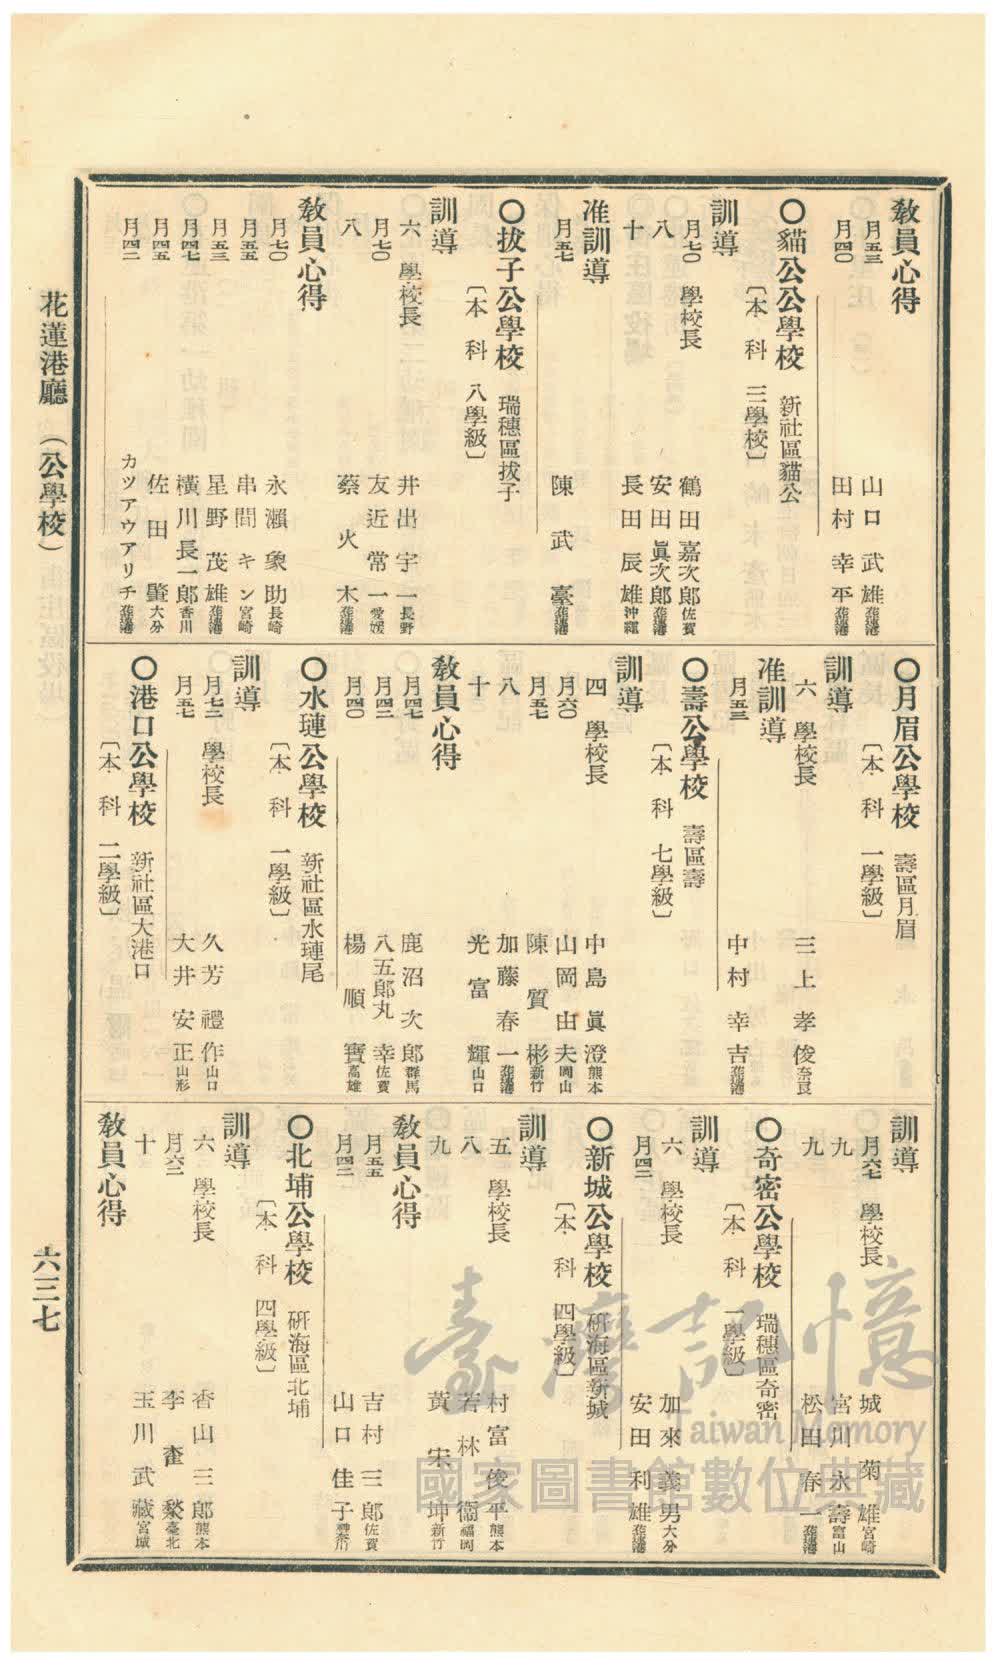 教員心得
月五三 山口武雄 花蓮港
月四〇 田村幸平 花蓮港
〇貓公公學校 新社區貓公
〔本科 三學校〕
訓導
月七〇 學校長 鶴田嘉次郎 佐賀
八 安田眞次郎 花蓮港
十 長田辰雄 沖繩
准訓導
月五七 陳武臺 花蓮港
〇拔子公學校 瑞穗區拔子
〔本科 八學級〕
訓導
六 學校長 井出宇一 長野
月七〇 友近常一 愛媛
八 蔡火木 花蓮港
教員心得
月七〇 永瀨象助 長崎
月五五 串間キン 宮崎
月五三 星野茂雄 花蓮港
月四七 橫川長一郎 香川
月四五 佐田肇 大分
月四二 カツアウアリチ 花蓮港
〇月眉公學校 壽區月眉
〔本科 一學級〕
訓導
六 學校長 三上孝俊 奈良
准訓導
月五三 中村幸吉 花蓮港
〇壽公學校 壽區壽
〔本科 七學級〕
訓導
四 學校長 中島眞澄 熊本
月六〇 山岡由夫 岡山
月五七 陳質彬 新竹
八 加藤春一 花蓮港
十 光富輝 山口
教員心得
月四七 鹿沼次郎 群馬
月四二 八五郎丸幸 佐賀
月四〇 楊順寶 高雄
〇水璉公學校 新社區水璉尾
〔本科 一學級〕
訓導
月七二 學校長 久芳禮作 山口
月五七 大井安正 山形
〇港口公學校 新社區大港口
〔本科 二學級〕
訓導
月六七 學校長 城菊雄 宮崎
九 宮川永壽 富山
九 松田春一 花蓮港
〇奇密公學校 瑞穗區奇密
〔本科 一學級〕
訓導
六 學校長 加來義男 大分
月四二 安田利雄 花蓮港
〇新城公學校 研海區新城
〔本科 四學級〕
訓導
五 學校長 村富俊平 熊本
八 若林衞 福岡
九 黃宋坤 新竹
教員心得
月五五 吉村三郎 佐賀
月四二 山口佳子 神奈川
〇北埔公學校 研海區北埔
〔本科 四學級〕
訓導
六 學校長 香山三郎 熊本
月六二 李 臺北
十 玉川武藏 宮城
教員心得
花蓮港廳 （公學校）
六三七
臺灣記憶
Taiwan Memory
國家圖書館數位典藏